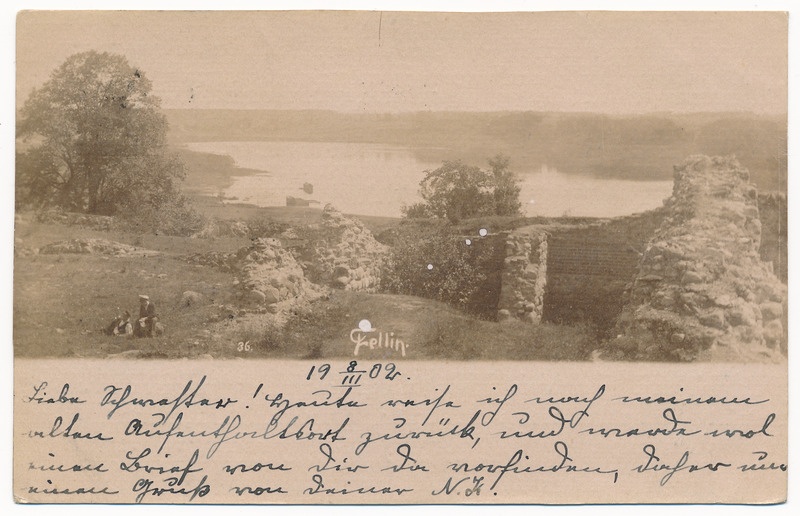 36.
Fellin.
19 8/III 02.
Liebe Schwester! Heute reise ich nach meinem
alten Aufenthaltsort zurück, und werde wol
einen Brief von Dir da vorfinden, daher nur
einen Gruß von Deiner N.K.